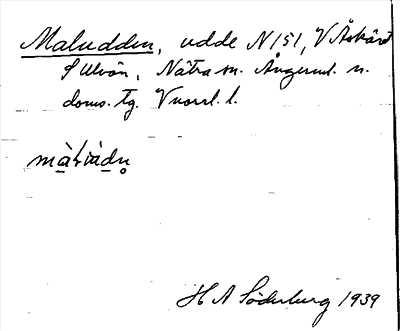 Maludden, udde N 151, V Åskärd
S Ulvön, Nätra sn. Ångerml. n.
doms. tg. Vnorrl. l.
H A Söderberg 1939